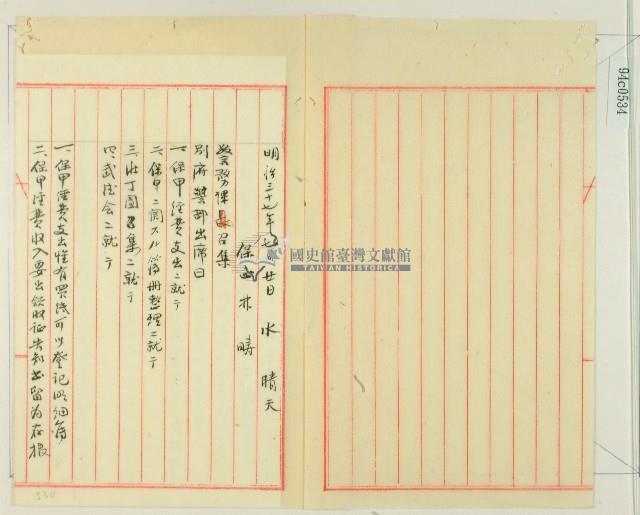 明治三十七年七月廿日 水 晴天
保正 林 疇
警務課長召集
別府警部出席曰
一、保甲經費支出ニ就テ
二、保甲ニ関スル簿冊整理ニ就テ
三、壯丁團召集ニ就テ
四、武德会ニ就テ
一、保甲經費支出惟有買紙可以登記明細簿
二、保甲經費收入要出領收証告知書留為存根
國史館臺灣文獻館
TAIWAN HISTORICA
94c0534